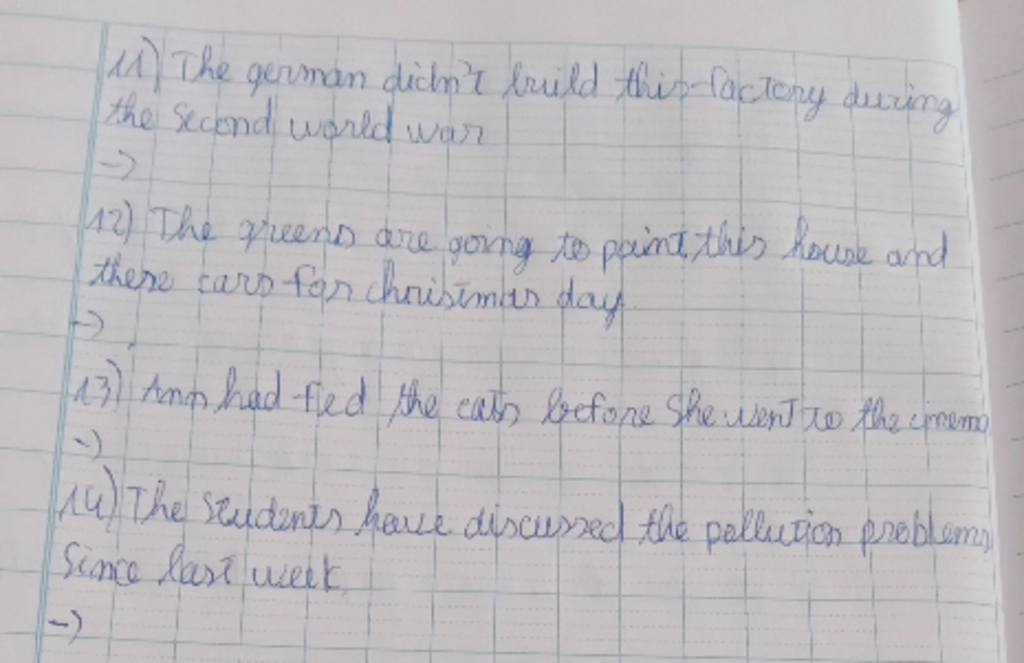 11) The german didn't build this factory during
the second world war
->
12) The greens are going to paint this house and
these cars for christmas day
->
13) Ann had fied the cats before she went to the cinema
->
14) The students have discussed the pollution problems
since last week
->